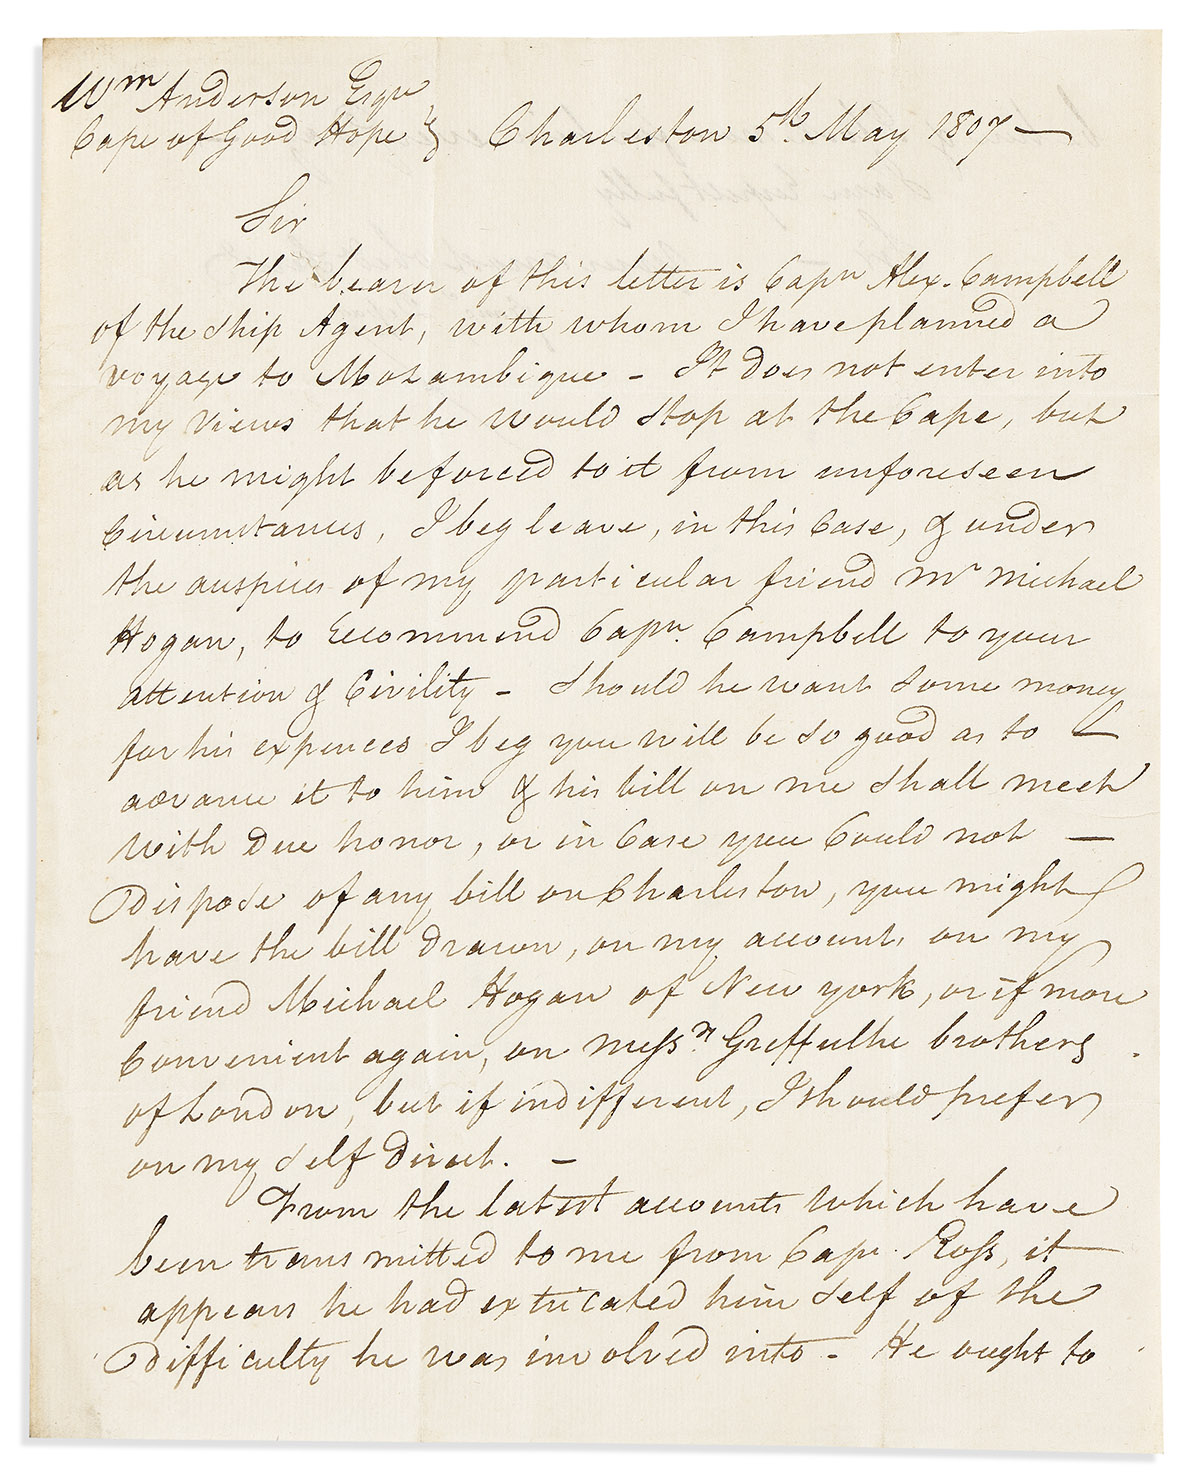 Wm Anderson Esqre
Cape of Good Hope } Charleston 5th. May 1807 —
Sir
The bearer of this letter is Capn Alex. Campbell
of the Ship Agent, with whom I have planned a
voyage to Mozambique - It Does not enter into
my views that he would Stop at the Cape, but
as he might be forced to it from unforeseen
Circumstances, I beg leave, in this Case, & under
the auspices of my particular friend Mr Michael
Hogan, to Recommend Capn. Campbell to your
attention & Civility - Should he want Some money
for his expences I beg you will be So good as to —
advance it to him & his bill on me Shall meet
with Due honor, or in Case you Could not —
Dispose of any bill on Charleston, you might
have the bill Drawn, on my account, on my
friend Michael Hogan of New york, or if more
Convenient again, on Messrs Greffulhe brothers
of London, but if indifferent, I Should prefer
on my Self Direct. —
From the latest accounts which have
been transmitted to me from Capn. Ross, it —
appears he had extricated him Self of the
Difficulty he was involved into - He ought to